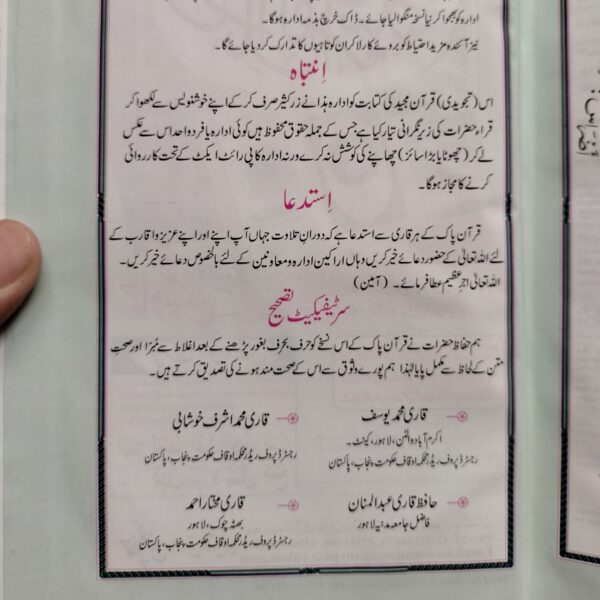 ادارہ کو بھجوا کر نیا نسخہ منگوا لیا جائے۔ ڈاک خرچ بذمہ ادارہ ہوگا۔
نیز آئندہ مزید احتیاط کو بروئے کار لا کر ان کوتاہیوں کا تدارک کر دیا جائے گا۔
اِنتباہ
اس (تجویدی) قرآن مجید کی کتابت کو ادارہ ہذا نے زر کثیر صرف کر کے اپنے خوشنویس سے لکھوا کر
قراء حضرات کی زیر نگرانی تیار کیا ہے جس کے جملہ حقوق محفوظ ہیں کوئی ادارہ یا فرد واحد اس سے عکس
لے کر (چھوٹا یا بڑا سائز) چھاپنے کی کوشش نہ کرے ورنہ ادارہ کاپی رائٹ ایکٹ کے تحت کارروائی
کرنے کا مجاز ہوگا۔
اِستدعا
قرآن پاک کے ہر قاری سے استدعا ہے کہ دورانِ تلاوت جہاں آپ اپنے اور اپنے عزیز و اقارب کے
لئے اللہ تعالیٰ کے حضور دعائے خیر کریں وہاں اراکین ادارہ و معاونین کے لئے بالخصوص دعائے خیر کریں۔
اللہ تعالیٰ اجرِ عظیم عطا فرمائے۔ (آمین)
سرٹیفیکیٹ تصحیح
ہم حفاظ حضرات نے قرآن پاک کے اس نسخے کو حرف بحرف بغور پڑھنے کے بعد اغلاط سے مُبرّا اور صحتِ
متن کے لحاظ سے مکمل پایا لہٰذا ہم پورے وثوق سے اس کے صحت مند ہونے کی تصدیق کرتے ہیں۔
قاری محمد یوسف
اکرم آباد والٹن، لاہور، کینٹ۔
رجسٹرڈ پروف ریڈر محکمہ اوقاف حکومت پنجاب، پاکستان
قاری محمد اشرف خوشابی
رجسٹرڈ پروف ریڈر محکمہ اوقاف حکومت پنجاب، پاکستان
حافظ قاری عبدالمنان
فاضل جامعہ مدنیہ لاہور
قاری مختار احمد
بھٹہ چوک، لاہور
رجسٹرڈ پروف ریڈر محکمہ اوقاف حکومت پنجاب، پاکستان